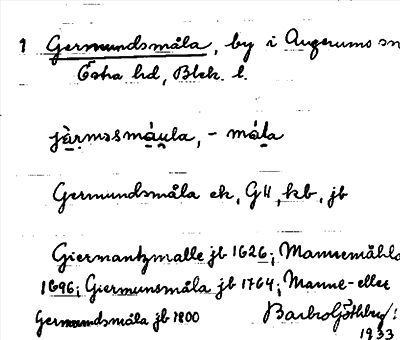 1 Germundsmåla, by i Augerums sn
Östra hd, Blek. l.
järmssmåula, - måla
Germundsmåla ek, GH, kb, jb
Giermantzmalle jb 1626; Mannemåhla
1696; Giermunsmåla jb 1764; Manne- eller
Germundsmåla jb 1800 Barbro Göthberg
1933